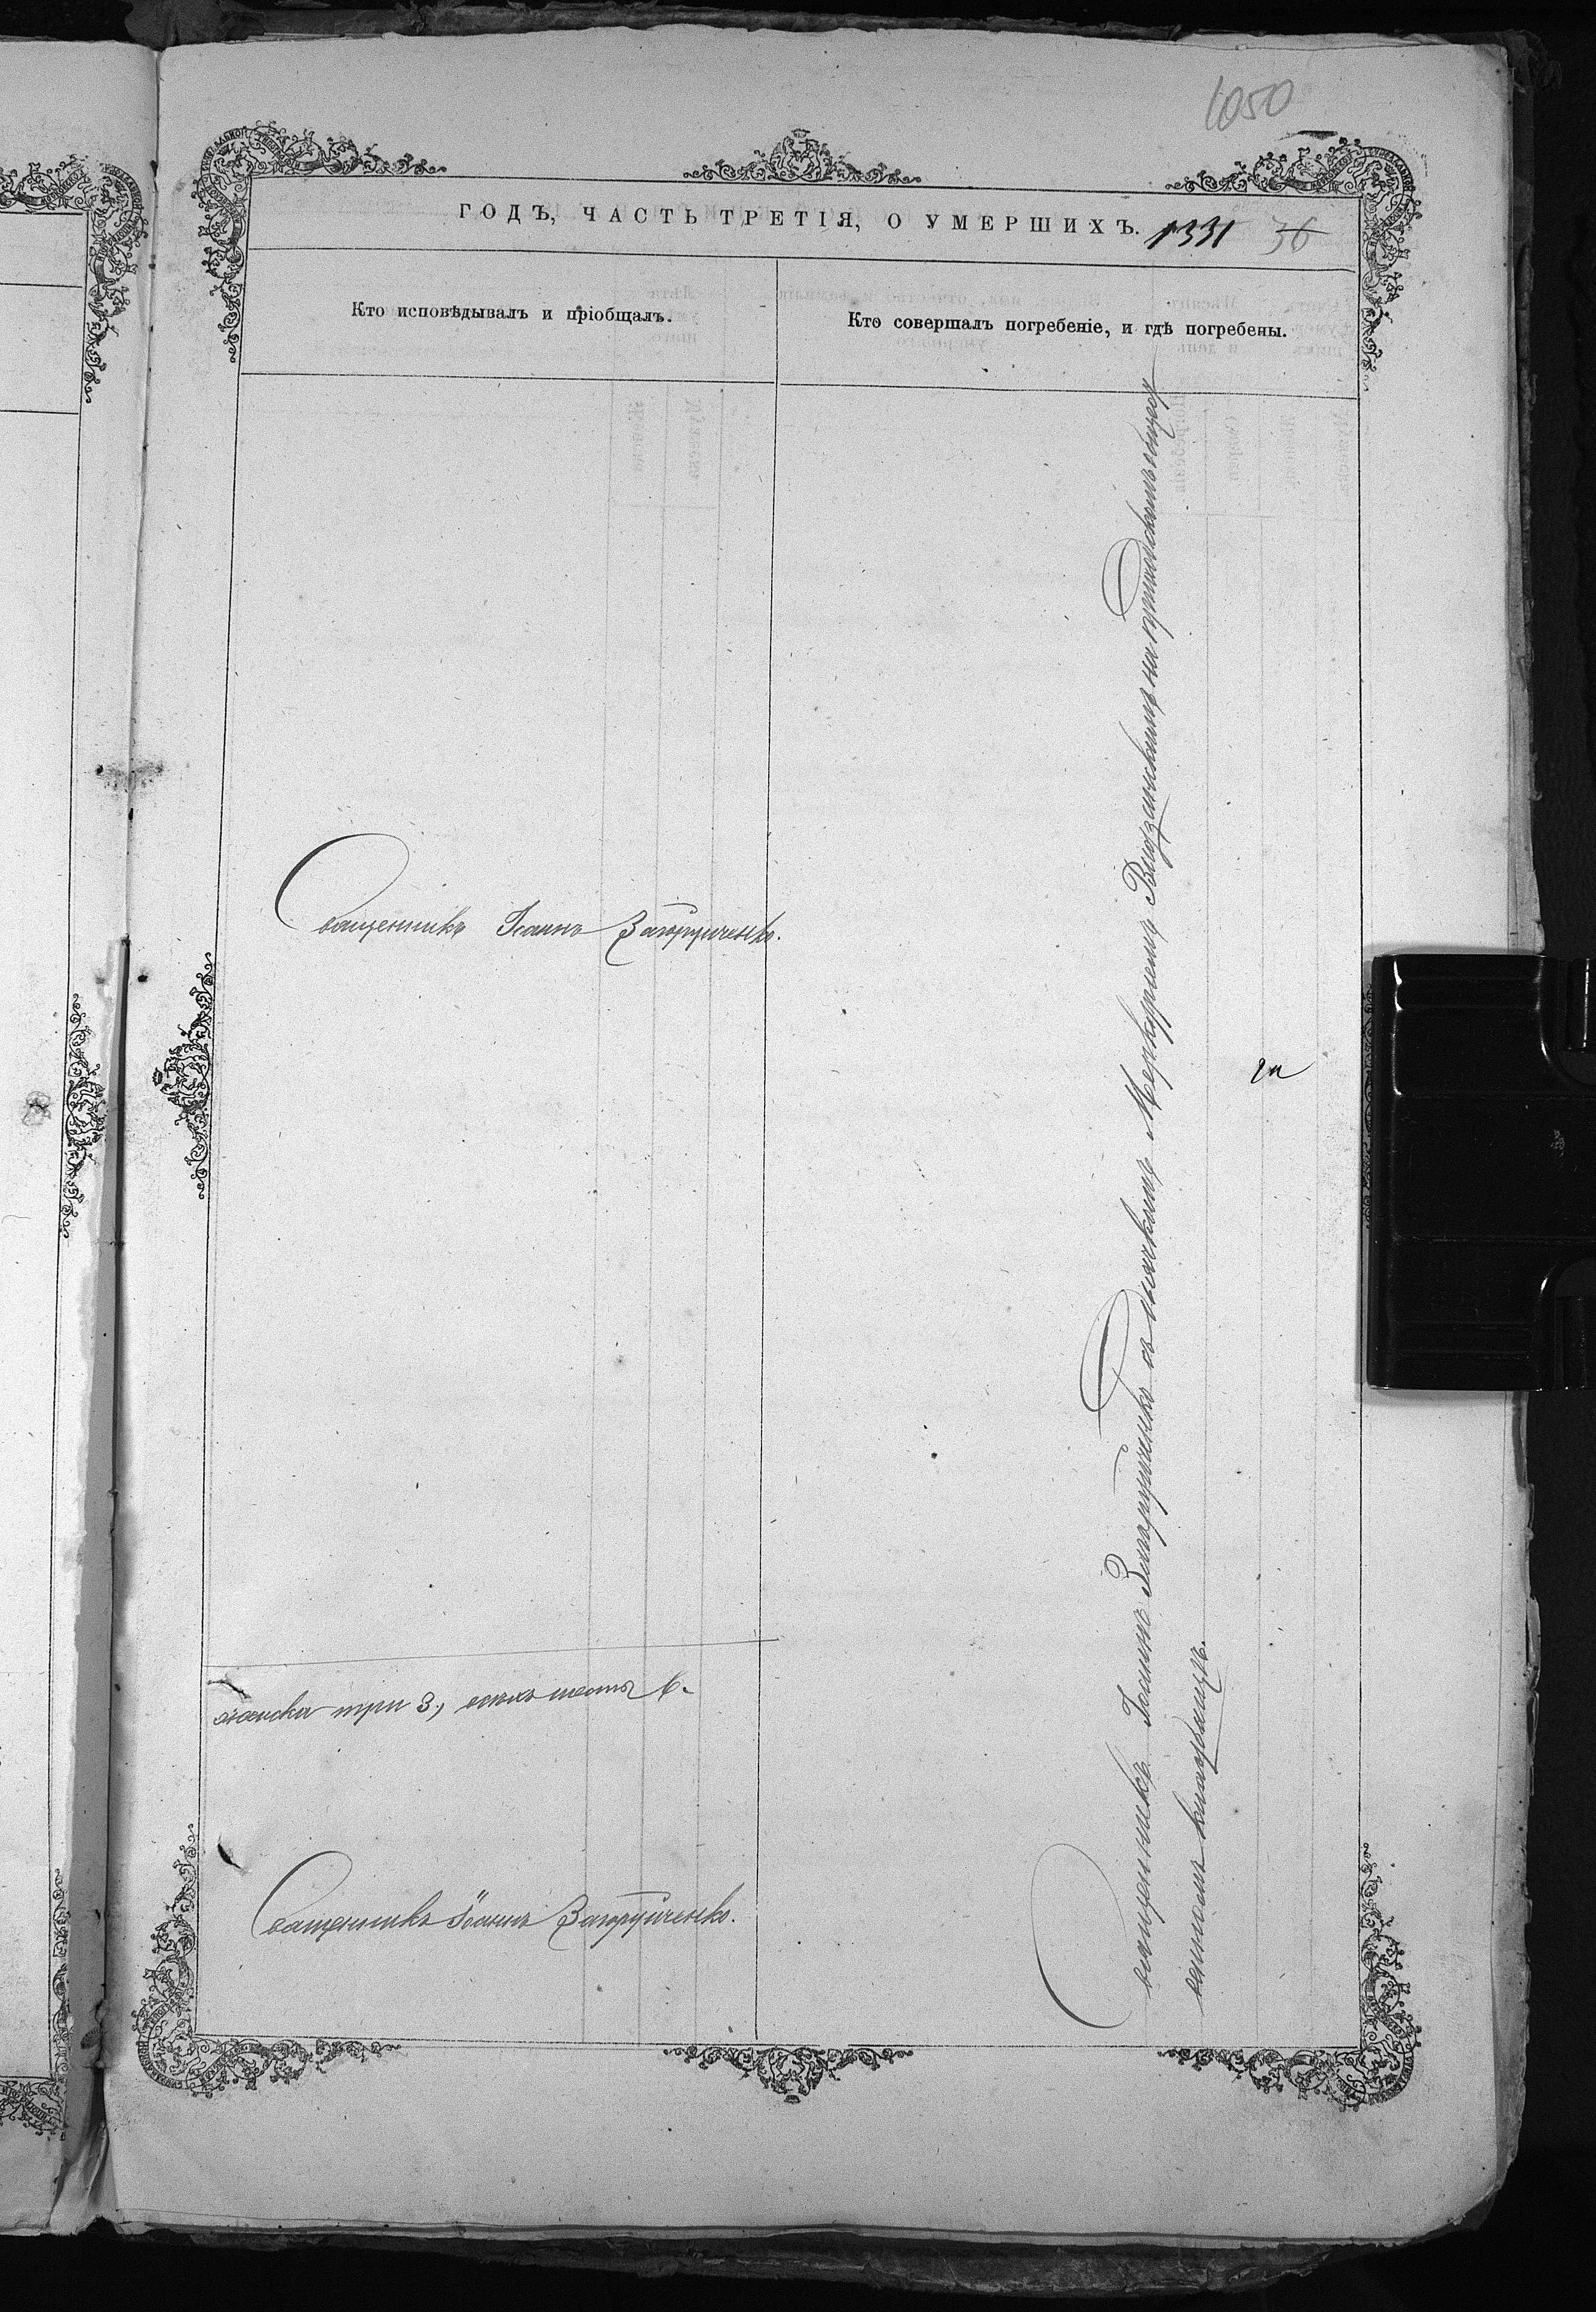 1050
ГОДЪ, ЧАСТЬ ТРЕТІЯ, О УМЕРШИХЪ. 1331 36
Кто исповѣдывалъ и пріобщалъ.
Кто совершалъ погребеніе, и гдѣ погребены.
Священникъ Іоаннъ Загорученко.
женска три 3, всѣхъ шесть 6.
Священникъ Іоаннъ Загорученко.
Священникъ Іоаннъ Загорученко съ дьячкомъ Меркуріемъ на приходскомъ
кладбищѣ.